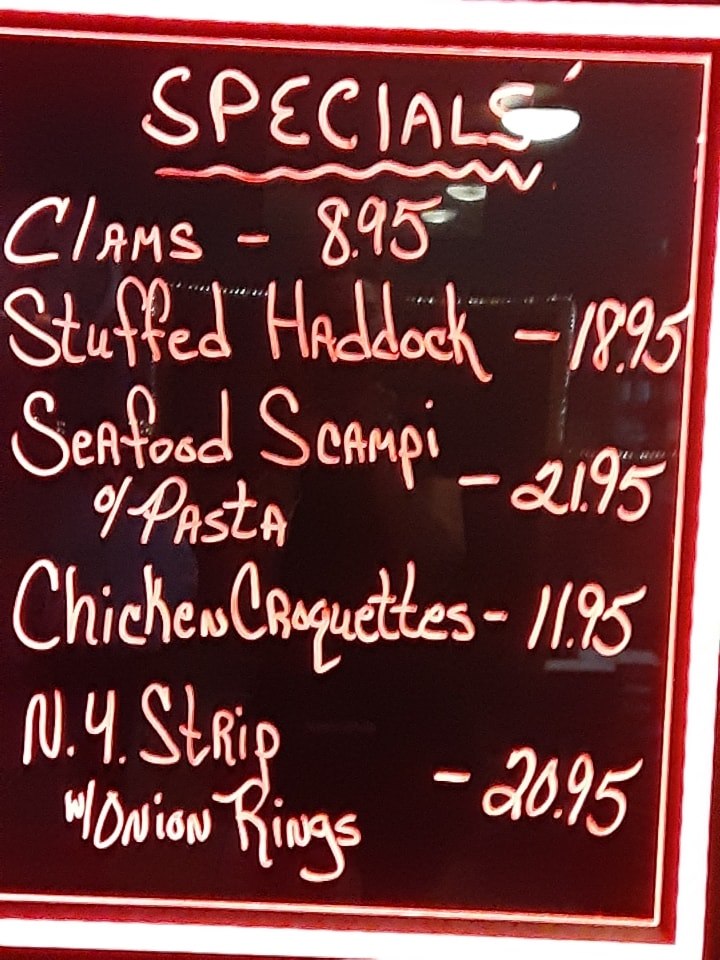 SPECIALS
Clams - 8.95
Stuffed Haddock - 18.95
Seafood Scampi
o/Pasta - 21.95
Chicken Croquettes - 11.95
N.Y. Strip
w/Onion Rings - 20.95